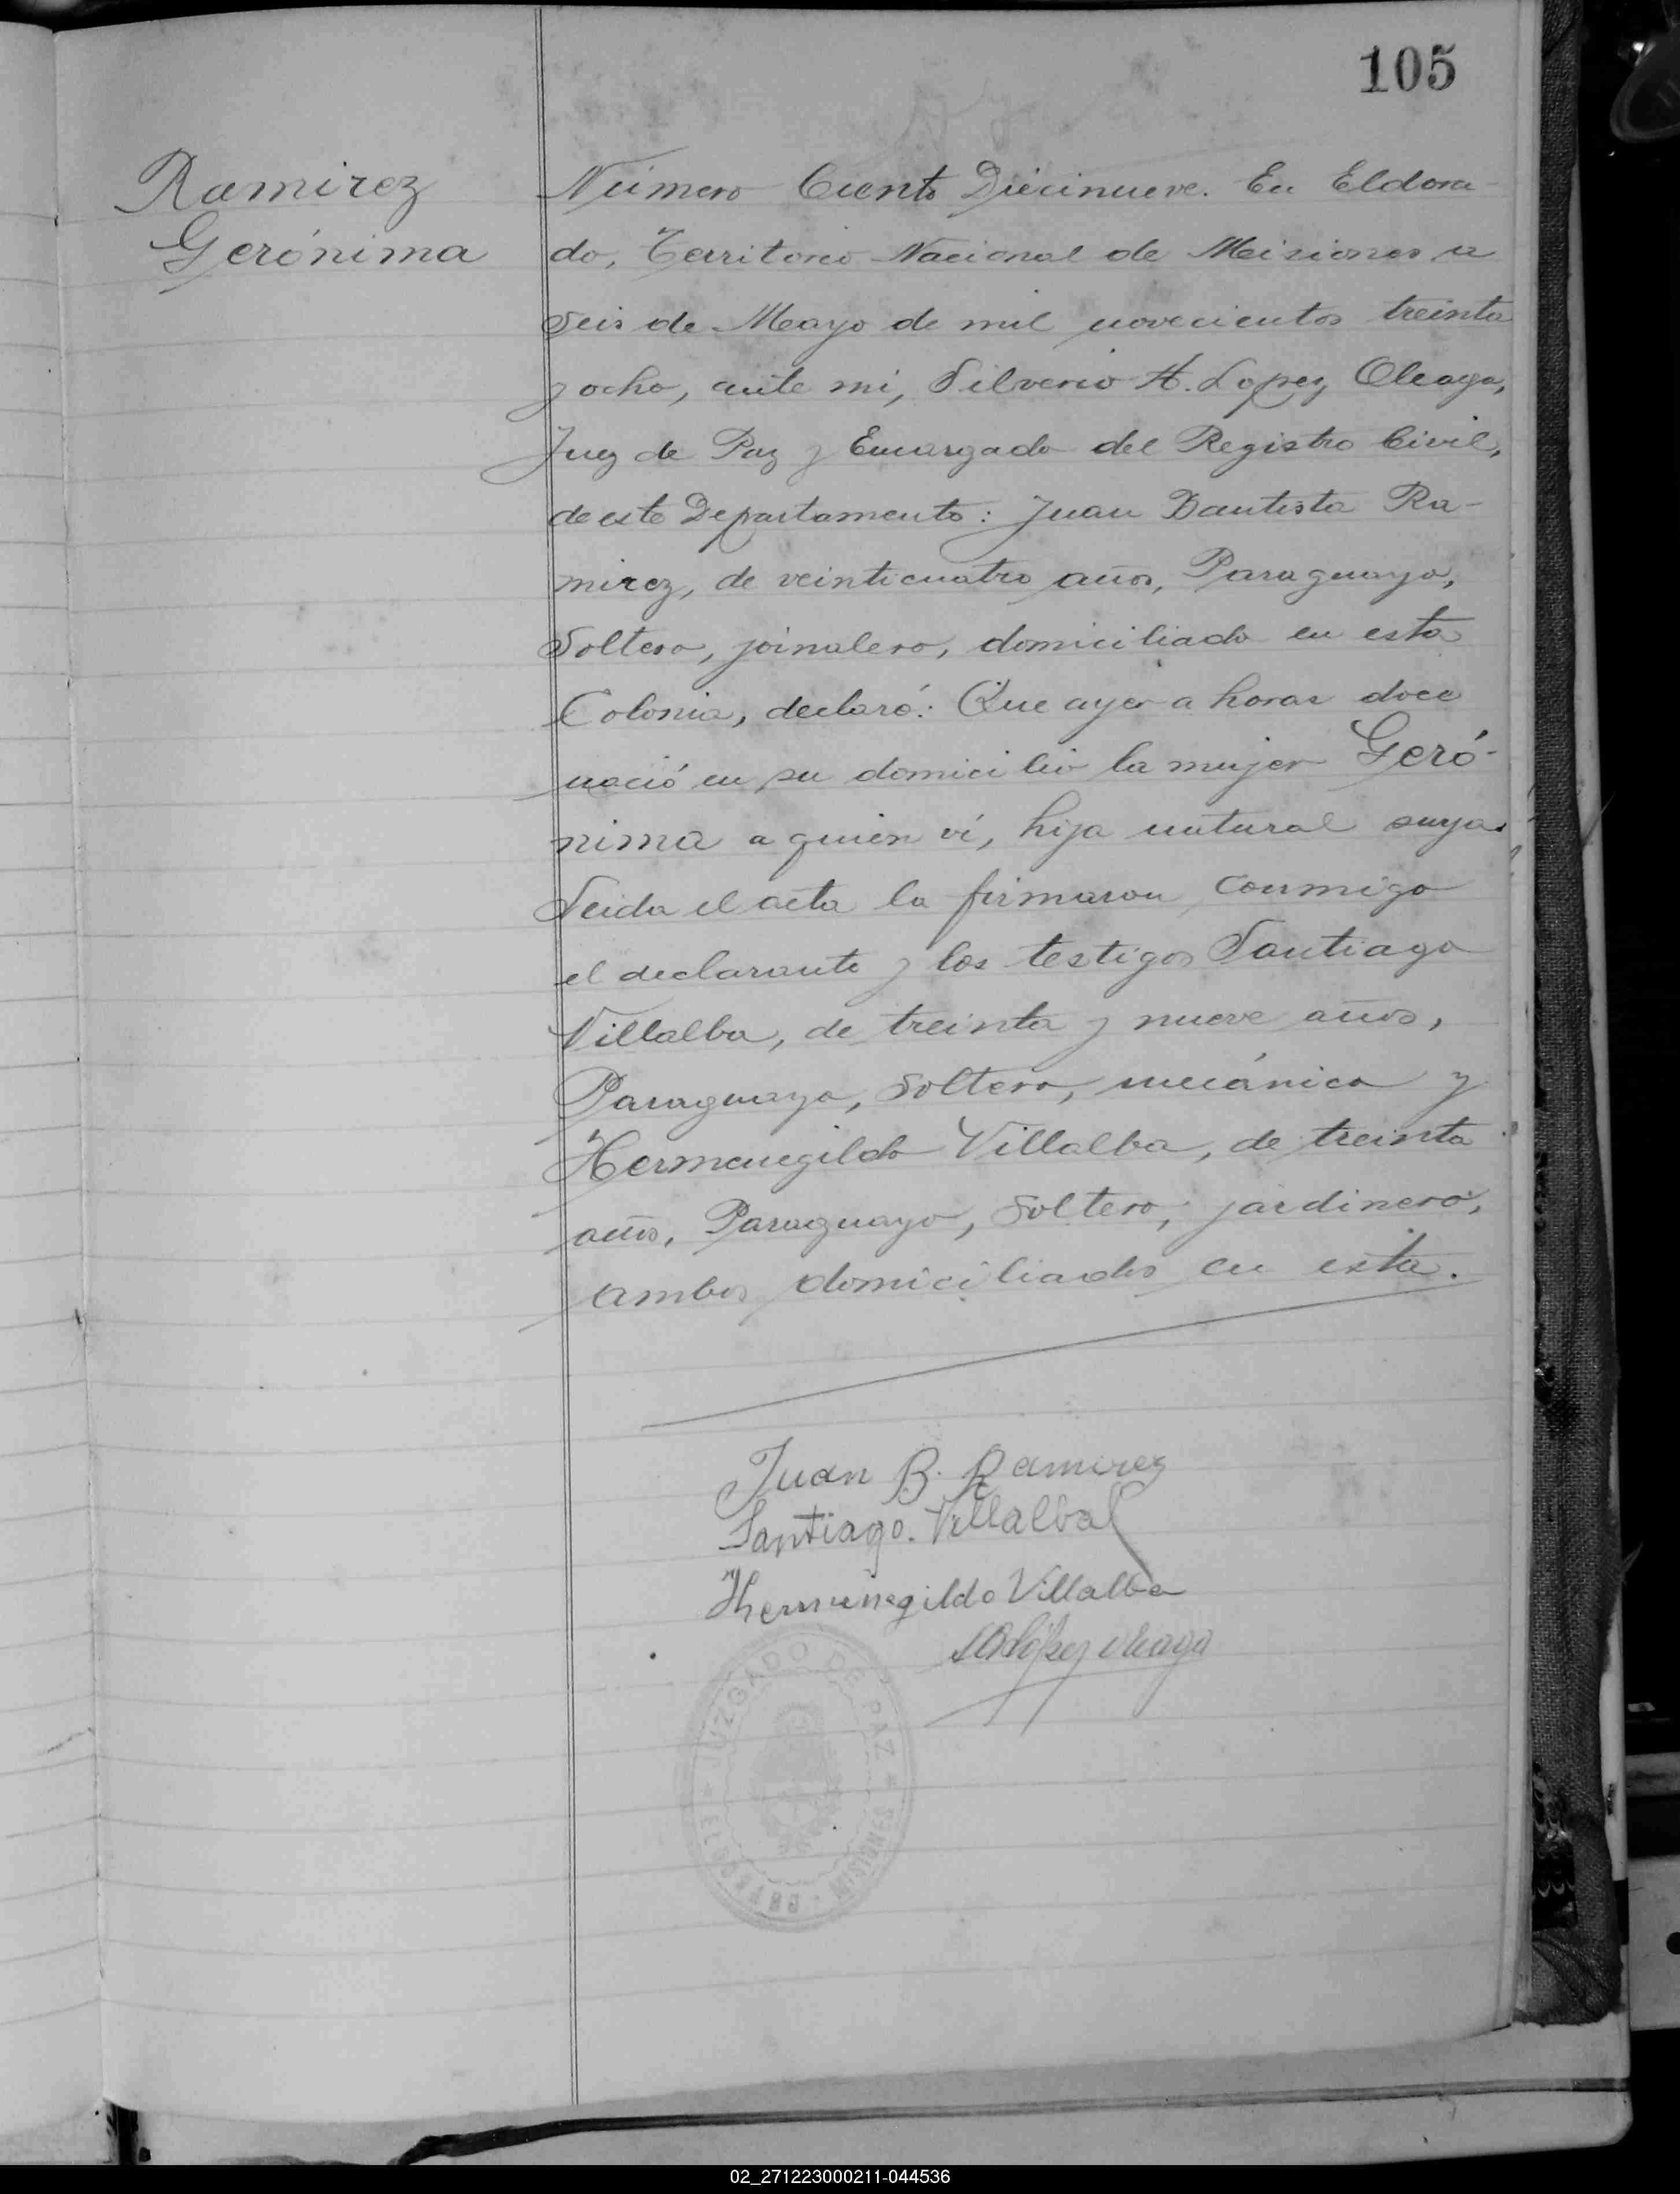 105
Ramirez
Gerónima
Número Ciento Diecinueve. En Eldora-
do, Territorio Nacional de Misiones a
seis de Mayo de mil novecientos treinta
y ocho, ante mi, Silverio A. Lopez Oleaga,
Juez de Paz y Encargado del Registro Civil,
de este Departamento: Juan Bautista Ra-
mirez, de veinticuatro años, Paraguayo,
Soltero, jornalero, domiciliado en esta
Colonia, declaró: Que ayer a horas doce
nació en su domicilio la mujer Geró-
nima a quien ví, hija natural suya.
Leida el acta la firmaron conmigo
el declarante y los testigos Santiago
Villalba, de treinta y nueve años,
Paraguayo, soltero, mecánico y
Hermenegildo Villalba, de treinta
años, Paraguayo, Soltero, jardinero,
ambos domiciliados en esta.
Juan B. Ramirez
Santiago. Villalba
Hermenegildo Villalba
SA López Oleaga
JUZGADO DE PAZ
ELDORADO - MISIONES
02_271223000211-044536